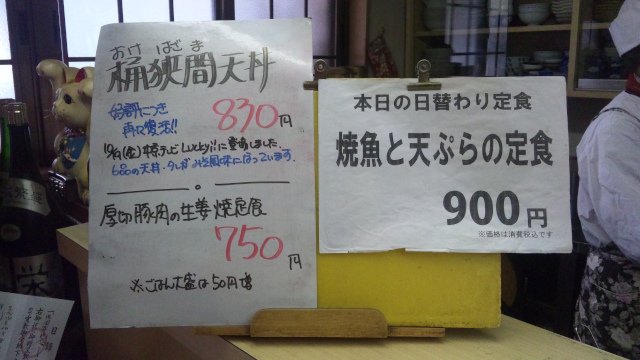 おけ はざま
桶狭間天丼
好評につき
再び復活!!
830円
10/9(金)中京テレビ「ぐっと」に登場しました。
6品の天丼・タレがみそ風味になっています。
厚切豚肉の生姜焼定食
750円
※ごはん大盛は50円増
本日の日替わり定食
焼魚と天ぷらの定食
900円
※価格は消費税込です